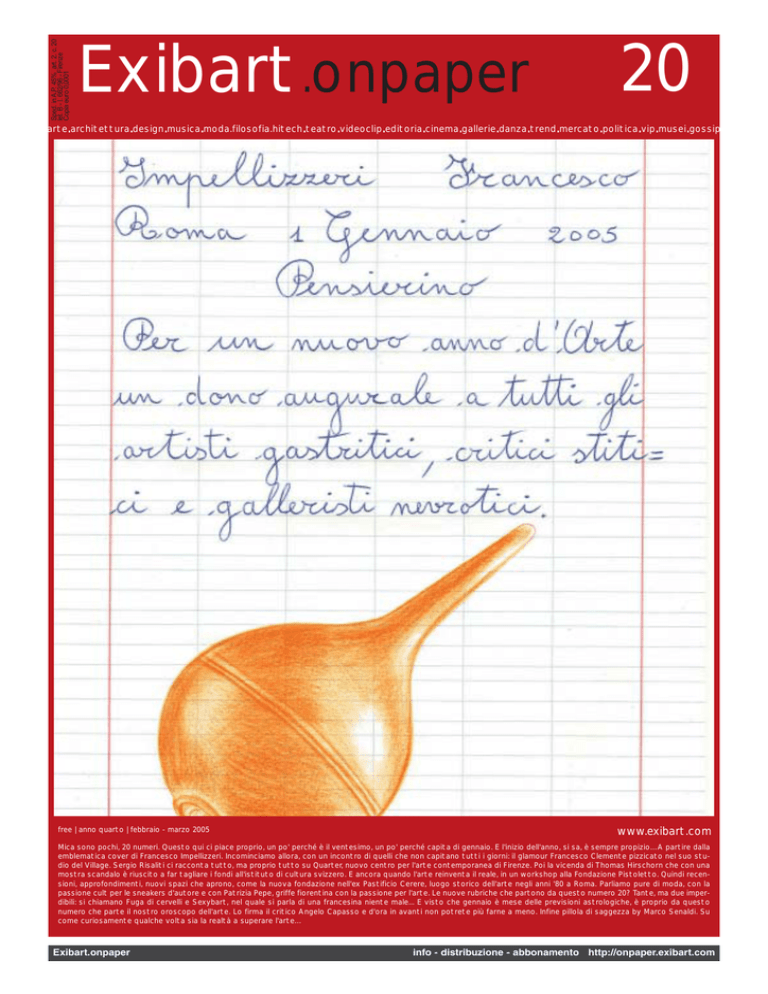 Exibart.onpaper 20
arte.architettura.design.musica.moda.filosofia.hitech.teatro.videoclip.editoria.cinema.gallerie.danza.trend.mercato.politica.vip.musei.gossip
Impellizzeri Francesco
Roma 1 Gennaio 2005
Pensierino
Per un nuovo anno d'Arte
un dono augurale a tutti gli
artisti gastritici, critici stiti=
ci e galleristi nevrotici.
free | anno quarto | febbraio - marzo 2005
www.exibart.com
Mica sono pochi, 20 numeri. Questo qui ci piace proprio, un po' perché è il ventesimo, un po' perché capita di gennaio. E l'inizio dell'anno, si sa, è sempre propizio... A partire dalla
emblematica cover di Francesco Impellizzeri. Incominciamo allora, con un incontro di quelli che non capitano tutti i giorni: il glamour Francesco Clemente pizzicato nel suo stu-
dio del Village. Sergio Risaliti ci racconta tutto, ma proprio tutto su Quarter, nuovo centro per l'arte contemporanea di Firenze. Poi la vicenda di Thomas Hirschorn che con una
mostra scandalo è riuscito a far tagliare i fondi all'istituto di cultura svizzero. E ancora quando l'arte reinventa il reale, in un workshop alla Fondazione Pistoletto. Quindi recen-
sioni, approfondimenti, nuovi spazi che aprono, come la nuova fondazione nell'ex Pastificio Cerere, luogo storico dell'arte negli anni '80 a Roma. Parliamo pure di moda, con la
passione cult per le sneakers d'autore e con Patrizia Pepe, griffe fiorentina con la passione per l'arte. Le nuove rubriche che partono da questo numero 20? Tante, ma due imper-
dibili: si chiamano Fuga di cervelli e Sexybart, nel quale si parla di una francesina niente male... E visto che gennaio è mese delle previsioni astrologiche, è proprio da questo
numero che parte il nostro oroscopo dell'arte. Lo firma il critico Angelo Capasso e d'ora in avanti non potrete più farne a meno. Infine pillola di saggezza by Marco Senaldi. Su
come curiosamente qualche volta sia la realtà a superare l'arte...
Exibart.onpaper
info - distribuzione - abbonamento http://onpaper.exibart.com